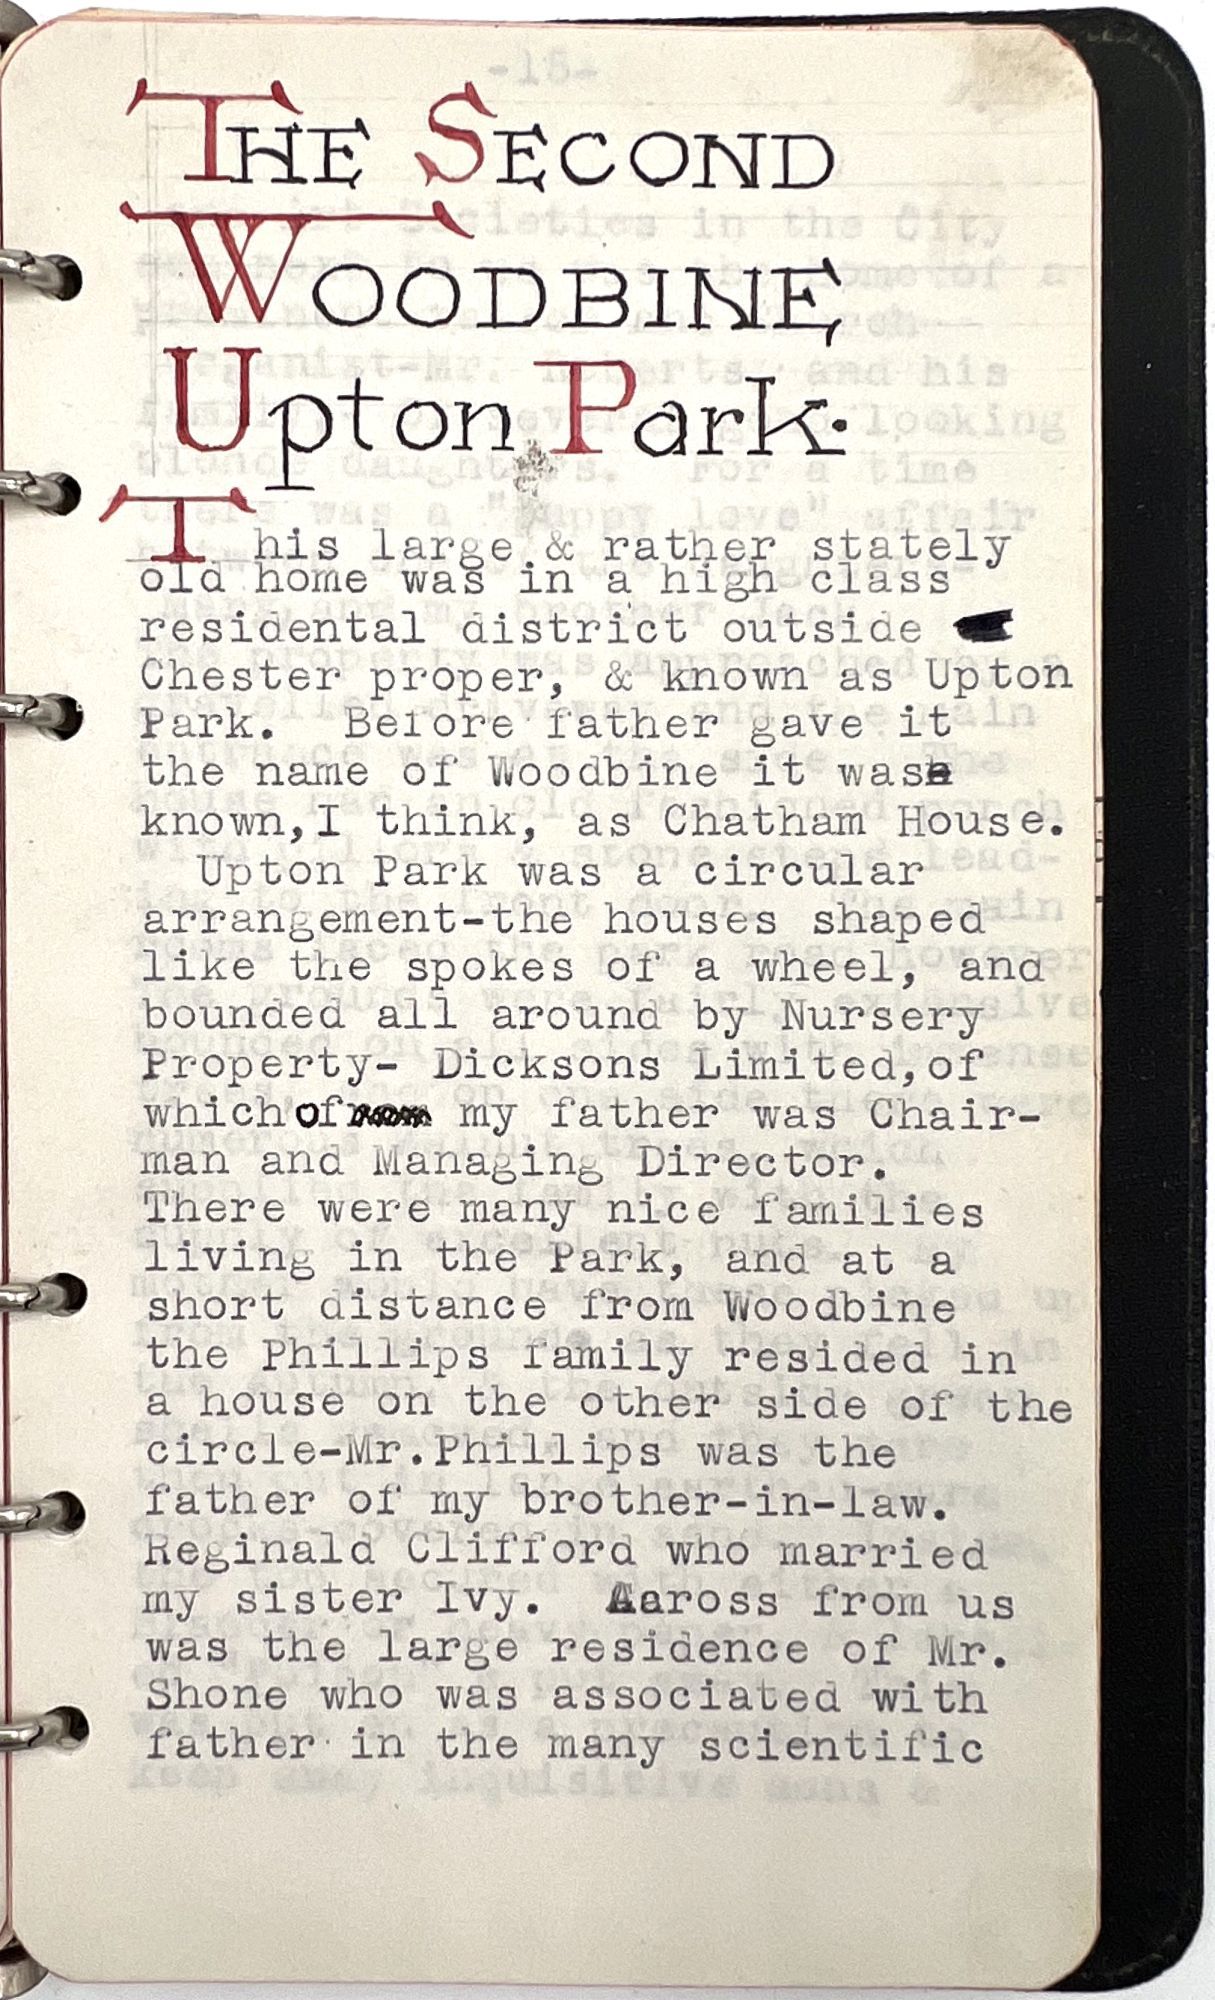 THE SECOND
WOODBINE
Upton Park.
This large & rather stately
old home was in a high class
residental district outside
Chester proper, & known as Upton
Park. Before father gave it
the name of Woodbine it was
known,I think, as Chatham House.
Upton Park was a circular
arrangement-the houses shaped
like the spokes of a wheel, and
bounded all around by Nursery
Property- Dicksons Limited,of
which of my father was Chair-
man and Managing Director.
There were many nice families
living in the Park, and at a
short distance from Woodbine
the Phillips family resided in
a house on the other side of the
circle-Mr.Phillips was the
father of my brother-in-law.
Reginald Clifford who married
my sister Ivy. Aaross from us
was the large residence of Mr.
Shone who was associated with
father in the many scientific